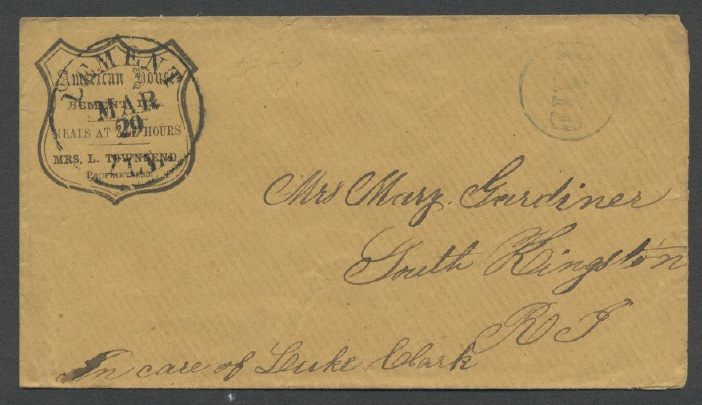 BEMENT
American House
BEMENT, ILL.
MAR
29
MEALS AT ALL HOURS
MRS. L. TOWNSEND
ILLS.
PROPRIETRESS.
PAID
Mrs Mary. Gardiner
South Kingston
R I
In care of Luke Clark